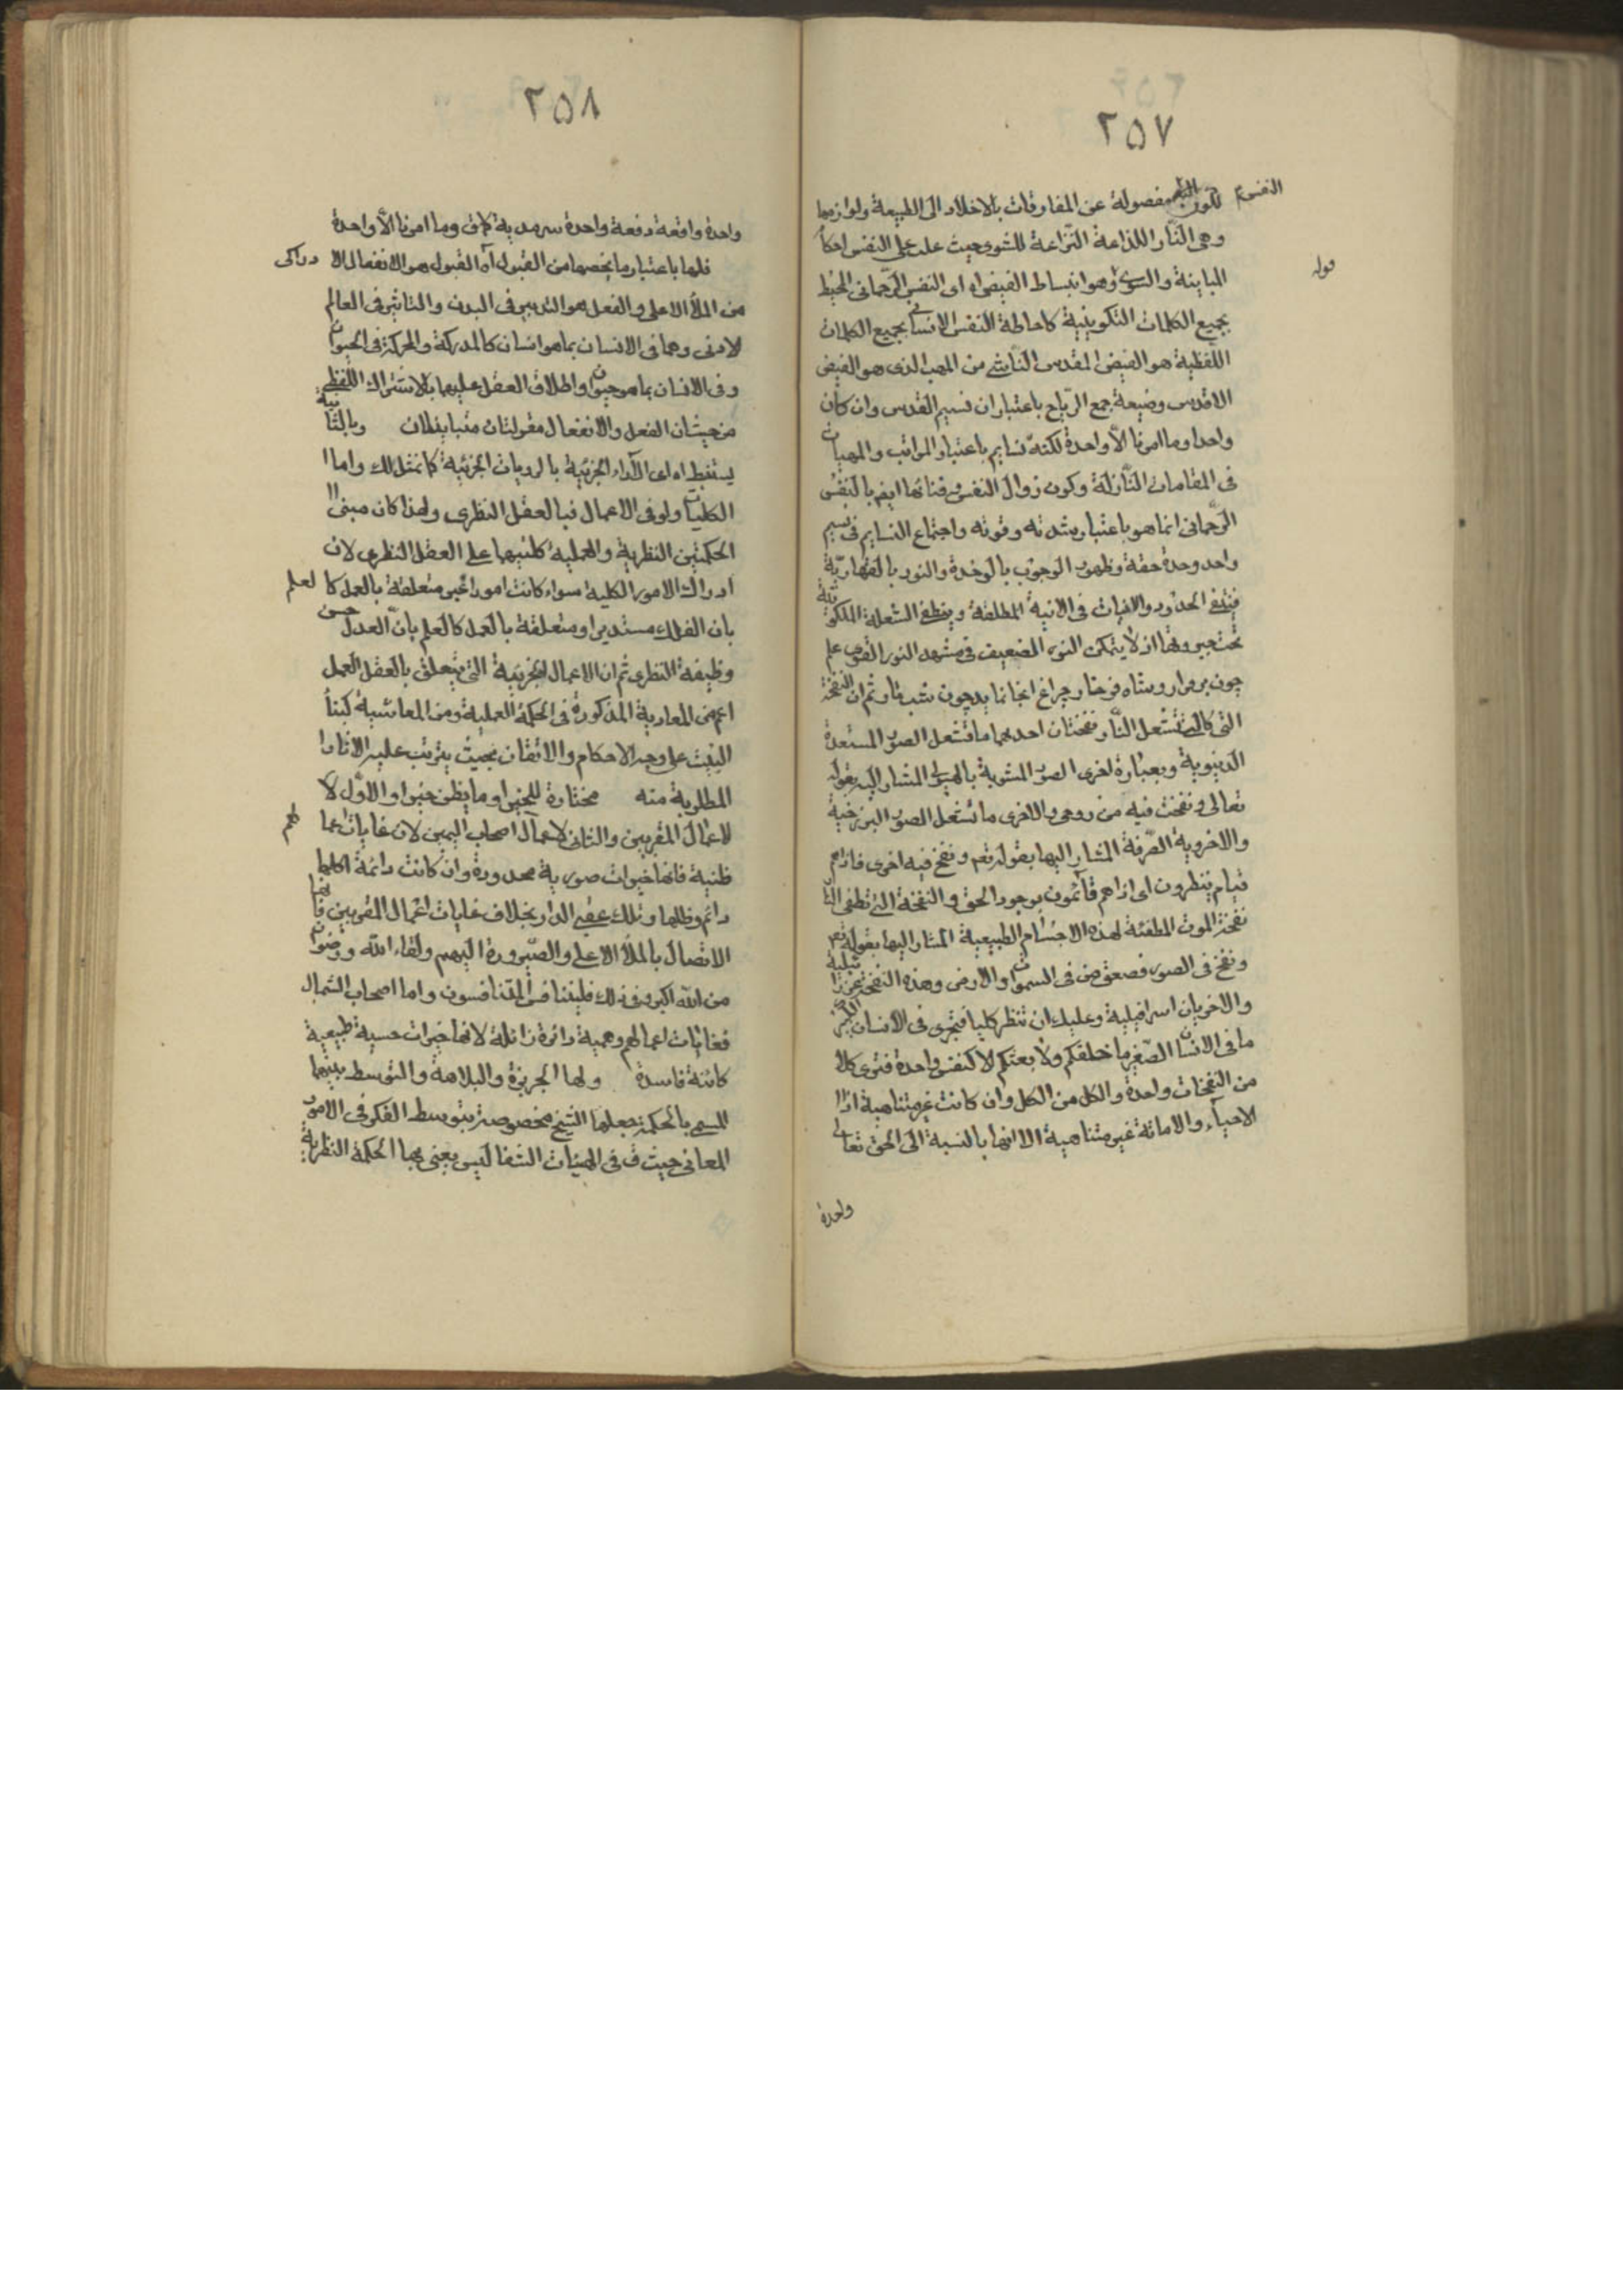 ٢٥٧
النفس
لكون مفصولة عن المفارقات بالاخلاد الى الطبيعة ولوازمها
وهى النار اللذاعة النزاعة للشوى حيث غلب على النفس احكام
قوله
المباينة والسوى وهو انبساط الفيض اه اى النفس الرحمانى المحيط
بجميع الكلمات التكوينية كاحاطة النفس الانسانى بجميع الكلمات
اللفظية هو الفيض المقدس الناشى من المهب الذى هو الفيض
الاقدس وصيغة جمع الرياح باعتبار ان نسيم القدس وان كان
واحدا وما امرنا الا واحدة لكنه نسايم باعتبار المراتب والمهيات
فى المقامات النازلة وكون زوال النفس وفنائها ايض بالنفس
الرحمانى انما هو باعتبار شدته وقوته واجتماع النسايم فى نسيم
واحد وحدة حقة وظهور الوجوب بالوحدة والنور بالقهارية
فينتفى الحدود والانيات فى الانية المطلقة وينطفى الشعلة الملكوتية
تحت جبروتها اذ لا يتمكن النور الضعيف فى مشهد النور القوى ع
چون پروبال روشناه فرختار چراغ انجا نمايد چون شب تار ثم ان النفخة
التى تشعل النار نفختان احديهما ما تشعل الصور المستعدة
الدنيوية وبعبارة اخرى الصور المشوبة بالهيولى المشار اليه بقوله
تعالى ونفخت فيه من روحى والاخرى ما تشعل الصور البرزخية
والاخروية الصرفة المشار اليها بقوله تعم ونفخ فيه اخرى فاذا هم
قيام ينظرون اى اذا هم قائمون بوجود الحق والنفخة التى تطفى النار
نفخة الموت المطفئة لهذه الاجسام الطبيعية المشار اليها بقوله تعم
ونفخ فى الصور فصعق من فى السموات والارض وهذه النفخة عزرائيلية
والاخريان اسرافيلية وعليك ان تنظر كليا فتجرى فى الانسان الكبير
ما فى الانسان الصغير ما خلقكم ولا بعثكم الا كنفس واحدة فترى كلا
من النفخات واحدة والكل من الكل وان كانت غير متناهية اذ
الاحياء والاماتة غير متناهية الا انها بالنسبة الى الحق تعالى
واحدة
٢٥٨
واحدة واقعة دفعة واحدة سرمدية كما ق وما امرنا الا واحدة
فلها باعتبار ما يخصها من القبول اه القبول هو الانفعال الادراكى
من الملأ الاعلى والفعل هو التدبير فى البدن والتاثير فى العالم
الادنى وهما فى الانسان بما هو انسان كالمدركة والمحركة فى الحيوان
وفى الانسان بما هو حيوان واطلاق العقل عليهما بالاشتراك اللفظى
من حيث ان الفعل والانفعال مقولتان متباينتان وبالثانية
يستنبط اه اى الآراء الجزئية بالرويات الجزئية كما نمثل لك واما
الكليات ولو فى الاعمال فبالعقل النظرى ولهذا كان مبنى
الحكمتين النظرية والعملية كلتيهما على العقل النظرى لان
ادراك الامور الكلية سواء كانت امورا غير متعلقة بالعمل كالعلم
بان الفلك مستدير او متعلقة بالعمل كالعلم بان العدل حسن
وظيفة النظرى ثم ان الاعمال الجزئية التى يتعلق بالعقل العملى
اعم من المعادية المذكورة فى الحكمة العملية ومن المعاشية كبناء
البيت على وجه الاحكام والاتقان بحيث يترتب عليه الاثار
المطلوبة منه مختارة للخير او ما يظن خيرا والاول
لاعمال المقربين والثانى لاعمال اصحاب اليمين لان غايات اعمالهم
ظنية فانها خيرات صورية محدودة وان كانت دائمة اكلها
دائم وظلها وتلك عقبى الدار بخلاف غايات اعمال المقربين فانها
الاتصال بالملأ الاعلى والصيرورة اليهم ولقاء الله ورضوان
من الله اكبر وفى ذلك فليتنافس المتنافسون واما اصحاب الشمال
فغايات اعمالهم وهمية داثرة زائلة لانها خيرات حسية طبيعية
كائنة فاسدة ولها الجربزة والبلاهة والتوسط بينهما
المسمى بالحكمة جعلها الشيخ مخصوصة بتوسط الفكر فى الامور
المعاشى حيث ق فى الهيات الشفا ليس يعنى بها الحكمة النظرية